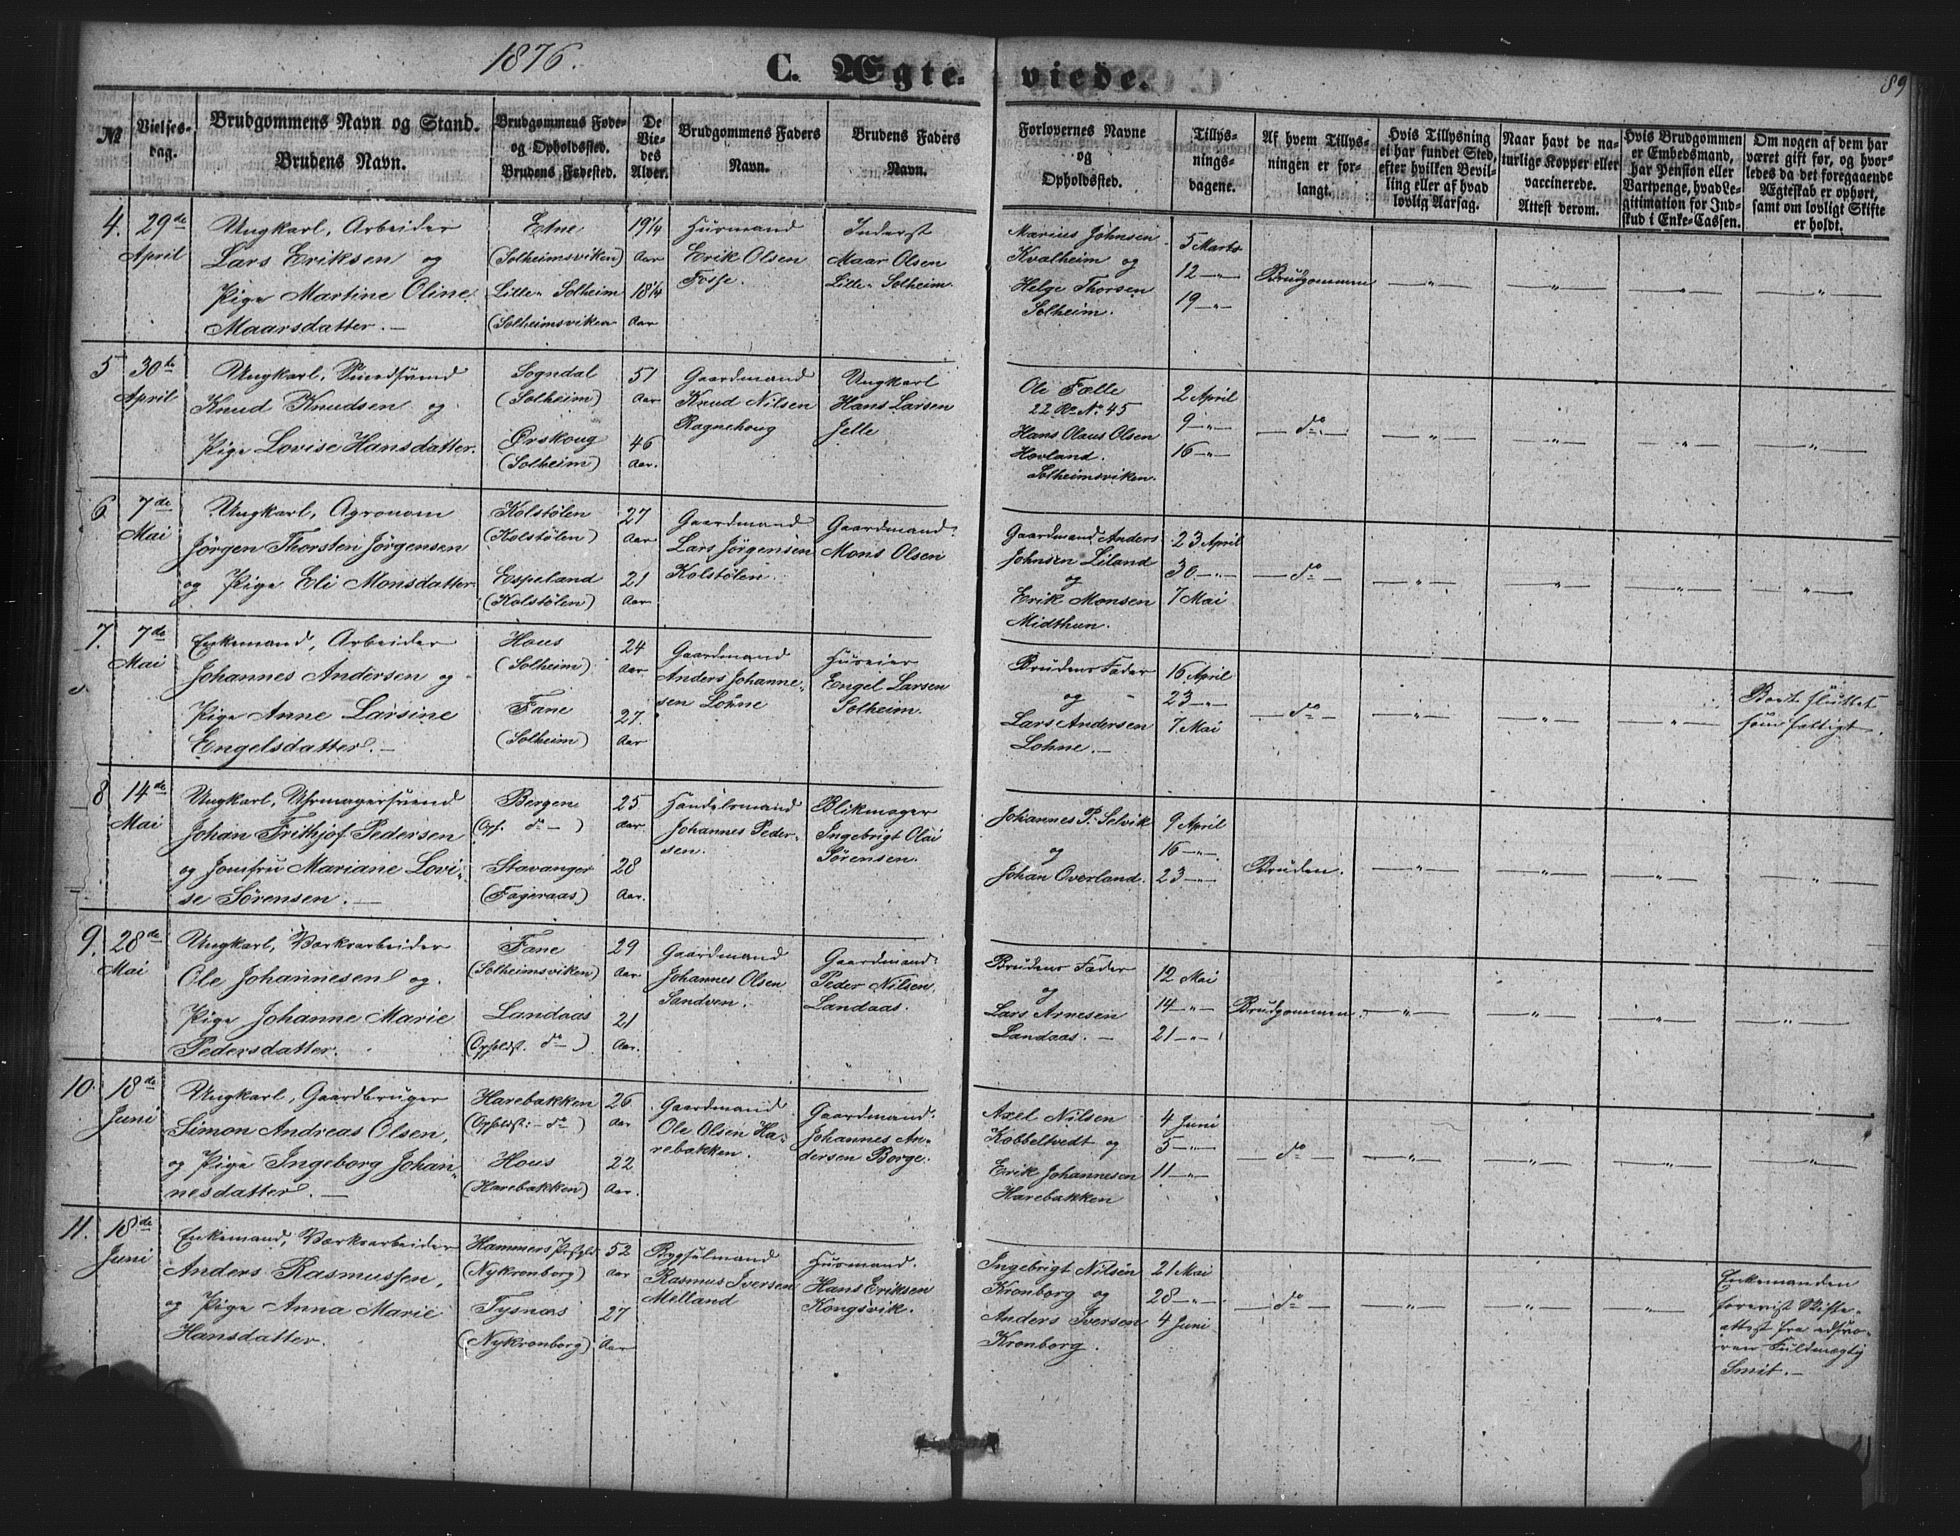 1876.
C. Ægte-viede.
89
№
Vielses-dag.
Brudgommens Navn og Stand.
Brudens Navn.
Brudgommens Føde- og Opholdssted.
Brudens Fødested.
De Viedes Alder.
Brudgommens Faders Navn.
Brudens Faders Navn.
Forlovernes Navne og Opholdssted.
Tillysningsdagene.
Af hvem Tillysningen er forlangt.
Hvis Tillysning ei har fundet Sted, efter hvilken Bevilling eller af hvad lovlig Aarsag.
Naar havt de naturlige Kopper eller vaccinerede. Attest derom.
Hvis Brudgommen er Embedsmand, har Pension eller Vartpenge, hvad Legitimation for Indskud i Enke-Cassen.
Om nogen af dem har været gift før, og hvorledes da det foregaaende Ægteskab er ophørt, samt om lovligt Skifte er holdt.
4. 29de April
Ungkarl, Arbeider
Lars Eriksen og
Pige Martine Oline
Maarsdatter. —
Etne
(Solheimsviken)
Lille Solheim
(Solheimsviken
19 1/4 Aar
18 1/4 Aar
Husmand
Erik Olsen
Fosse.
Inderst
Maar Olsen
Lille Solheim.
Marius Johnsen
Kvalheim og
Helge Thorsen
Solheim.
5 Marts
12 —"—
19 —"—
Brudgommen
5 30de April
Ungkarl,
Knud Knudsen og
Pige Lovise Hansdatter.
Sogndal
(Solheim)
Ørskoug
(Solheim)
51 Aar
46 Aar.
Gaardmand
Knud Nilsen
Ragnehoug
Ungkarl
Hans Larsen
Jelle
Ole Fælle
22 Ro. No. 45
Hans Olaus Olsen
Hovland.
Solheimsviken.
2 April
9 —"—
16 —"—
— do —
6 7de Mai
Ungkarl, Agronom
Jörgen Thorsten Jörgensen
og Pige Eli Monsdatter
Kolstølen
(Kolstølen)
Espeland
(Kolstølen)
27 Aar
21 Aar
Gaardmand
Lars Jörgensen
Kolstølen.
Gaardmand
Mons Olsen
Gaardmand Anders
Johnsen Liland
og
Erik Monsen
Midthun.
23 April
30 —"—
7 Mai
— do —
7. 7de Mai
Enkemand, Arbeider
Johannes Andersen og
Pige Anne Larsine
Engelsdatter. —
Hous
(Solheim)
Fane
(Solheim)
24 Aar
27. Aar
Gaardmand
Anders Johannesen Lohne
Huseier
Engel Larsen
Solheim.
Brudens Fader
og
Lars Andersen
Lohne. —
16 April
23 —"—
7 Mai
— do —
Boet sluttet
som fattigt.
8 14de Mai
Ungkarl, Uhrmagersvend
Johan Frithjof Pedersen
og Jomfru Mariane Lovise Sørensen. —
Bergen
(Oph. do —)
Stavanger
(Fageraas)
25 Aar.
28 Aar.
Handelsmand
Johannes Pedersen.
Blikmager
Ingebrigt Olai
Sørensen.
Johannes P. Selvik
og
Johan Overland.
9 April
16 —"—
23 —"—
Bruden.
9. 28de Mai
Ungkarl, Værksarbeider
Ole Johannesen og
Pige Johanne Marie
Pedersdatter.
Fane
(Solheimsviken)
Landaas
(Opholdst. do —)
29 Aar.
21 Aar.
Gaardmand
Johannes Olsen
Sandven.
Gaardmand
Peder Nilsen
Landaas.
Brudens Fader
og
Lars Arnesen
Landaas. —
12 Mai
14 —"—
21 —"—
Brudgommen.
10. 18de Juni
Ungkarl, Gaardbruger
Simon Andreas Olsen,
og Pige Ingeborg Johannesdatter. —
Harebakken
(Opholdst: — do)
Hous
(Harebakken)
26 Aar
22 Aar.
Gaardmand
Ole Olsen Harebakken.
Gaardmand.
Johannes Andersen Borge.
Axel Nilsen
Kobbeltvedt og
Erik Johannesen
Harebakken
4 Juni
5 —"—
11 —"—
— do —
11. 18de Juni
Enkemand, Værksarbeider
Anders Rasmussen,
og Pige Anna Marie
Hansdatter.
Hammers Præstgld
(Nykronborg)
Tysnæs
(Nykronborg)
52 Aar
27 Aar
Bygselmand
Rasmus Iversen
Melland
Husmand.
Hans Eriksen
Kongsvik.
Ingebrigt Nilsen
Kronborg og
Anders Iversen
Kronborg.
21 Mai
28 —"—
4 Juni
— do —
Enkemanden
forevist Skifteattest fra edsvoren Fuldmægtig
Smit. —